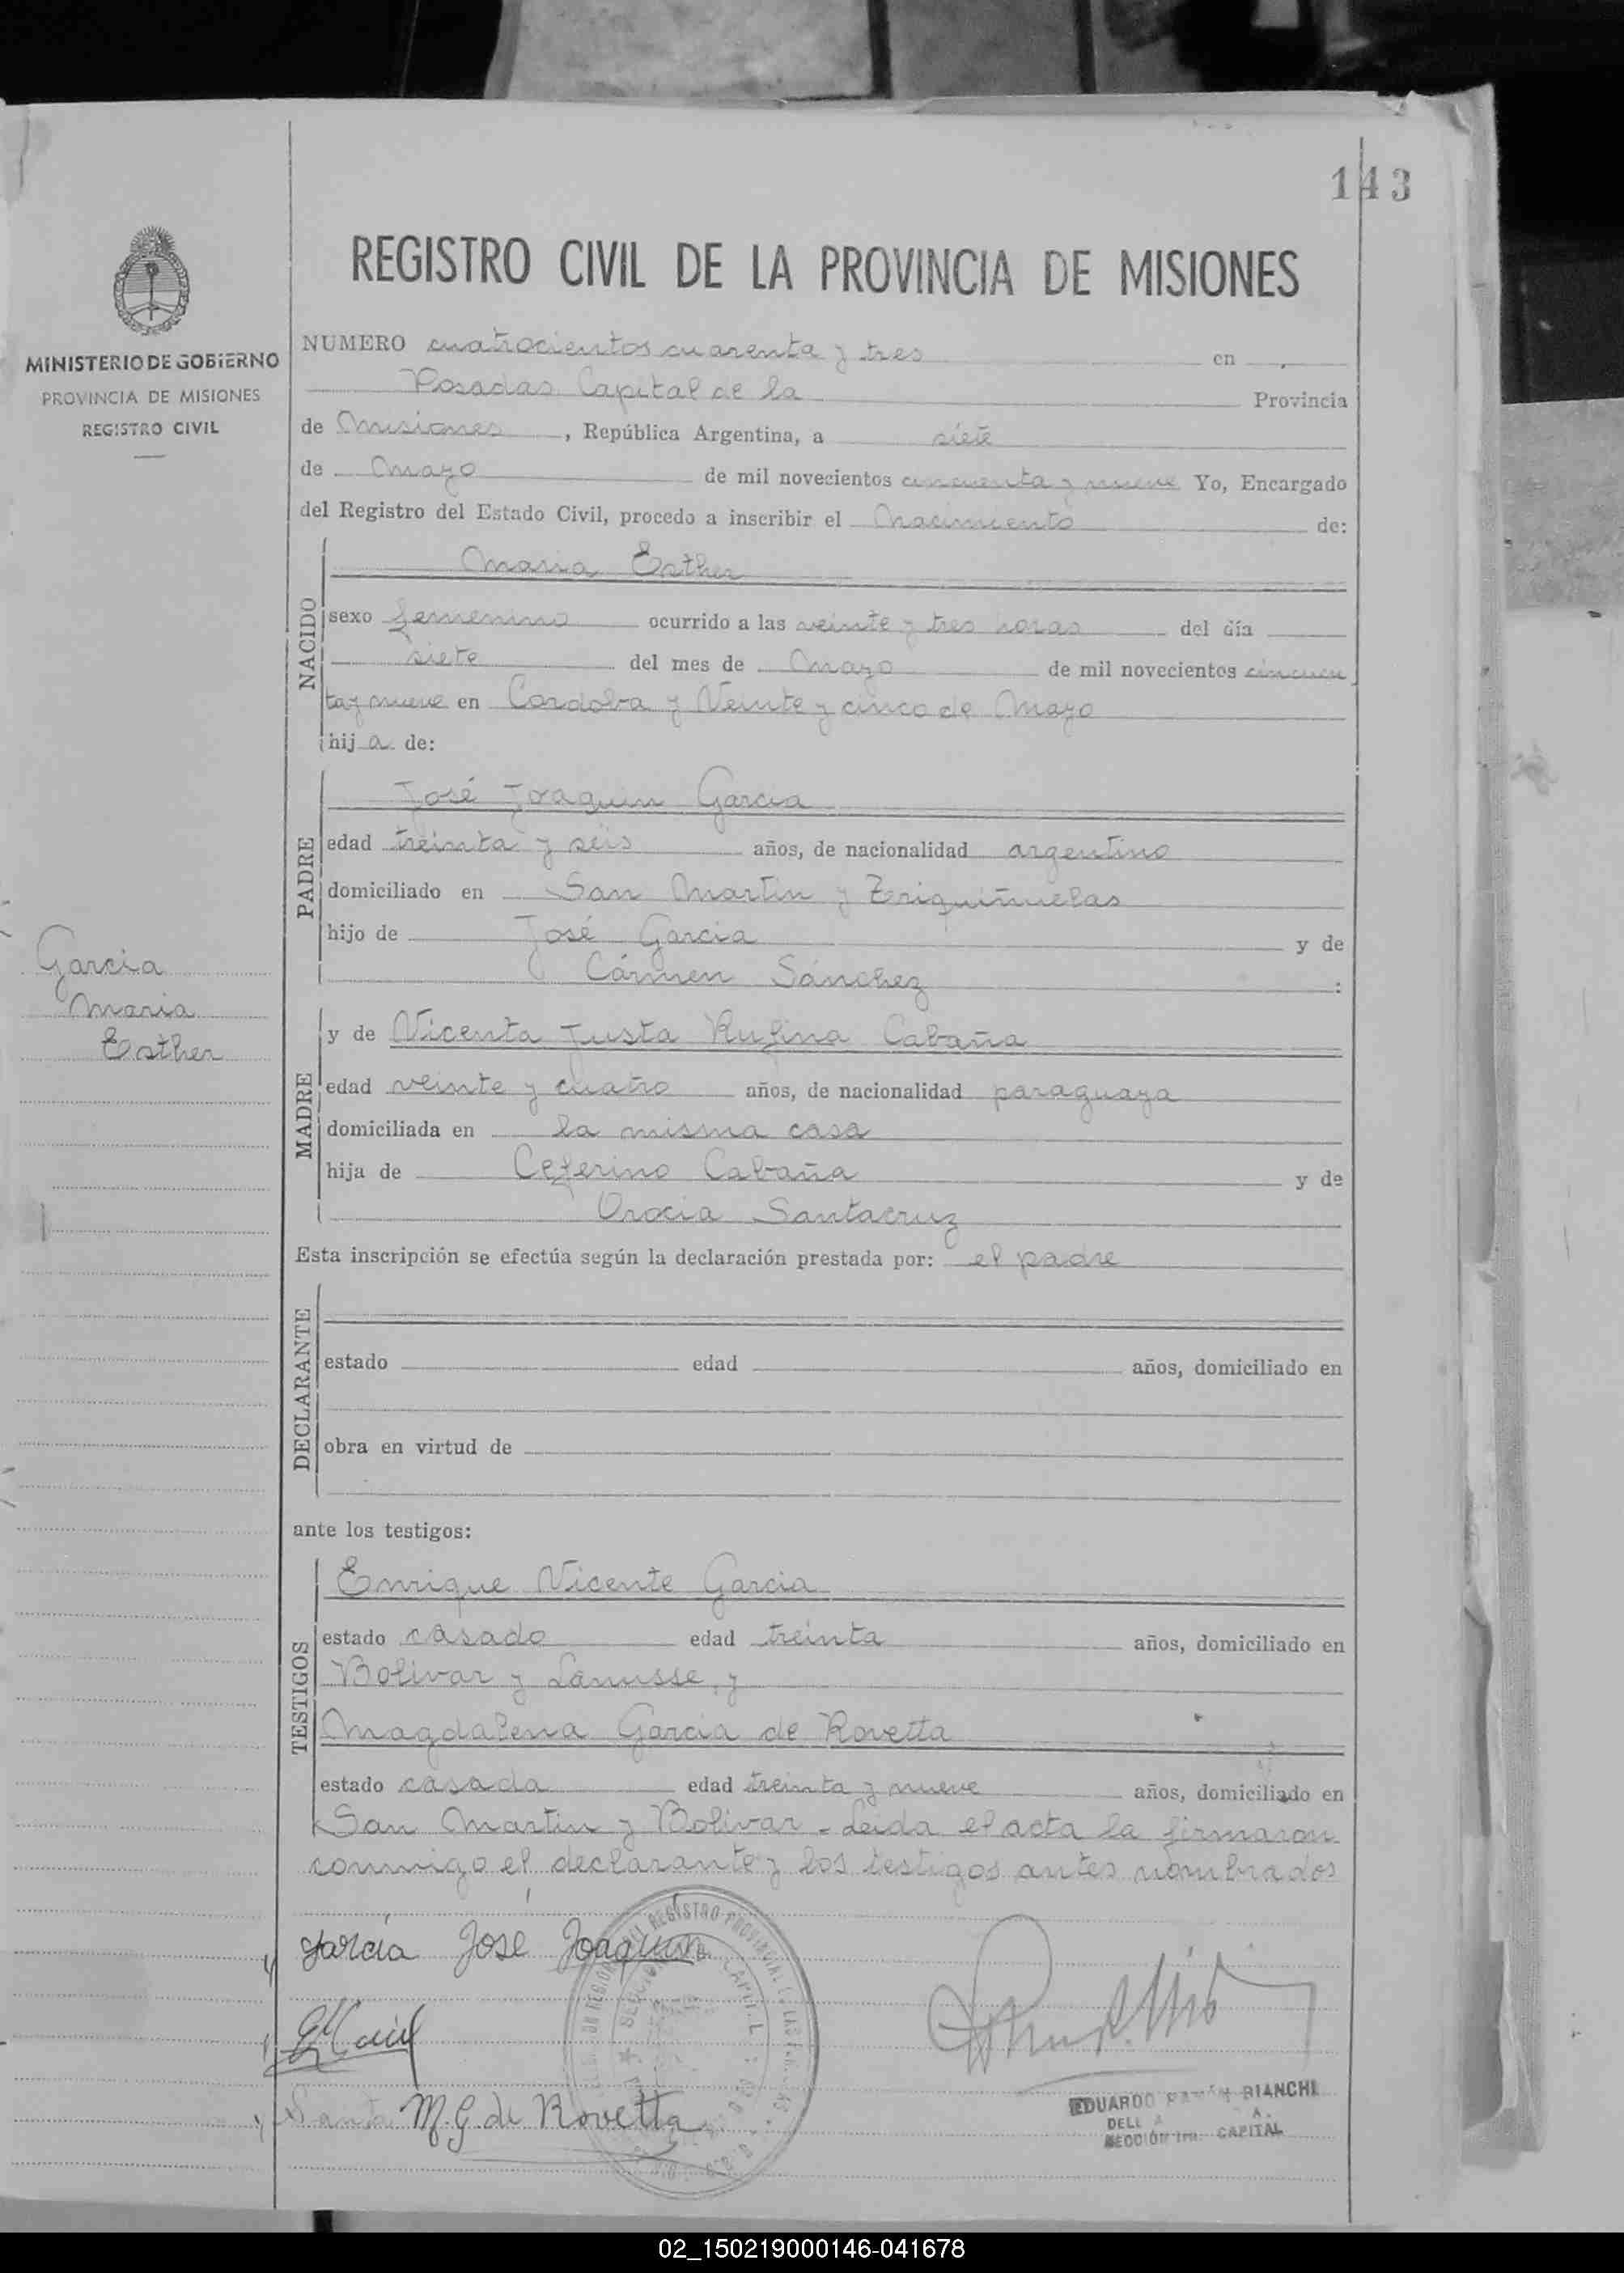 143
REGISTRO CIVIL DE LA PROVINCIA DE MISIONES
MINISTERIO DE GOBIERNO
PROVINCIA DE MISIONES
REGISTRO CIVIL
NUMERO cuatrocientos cuarenta y tres en
Posadas Capital de la Provincia
de Misiones, República Argentina, a siete
de Mayo de mil novecientos cincuenta y nueve Yo, Encargado
del Registro del Estado Civil, procedo a inscribir el Nacimiento de:
NACIDO
Maria Esther
sexo femenino ocurrido a las veinte y tres horas del día
siete del mes de Mayo de mil novecientos cincuen
ta y nueve en Cordoba y Veinte y cinco de Mayo
hija de:
PADRE
José Joaquin Garcia
edad treinta y seis años, de nacionalidad argentino
domiciliado en San Martin y Zeriquiñuelas
hijo de José Garcia y de
Cármen Sánchez :
Garcia
Maria
Esther
MADRE
y de Vicenta Justa Rufina Cabaña
edad veinte y cuatro años, de nacionalidad paraguaya
domiciliada en la misma casa
hija de Ceferino Cabaña y de
Orocia Santacruz
Esta inscripción se efectúa según la declaración prestada por: el padre
DECLARANTE
estado edad años, domiciliado en
obra en virtud de
ante los testigos:
TESTIGOS
Enrique Vicente Garcia
estado casado edad treinta años, domiciliado en
Bolivar y Lanusse, y
Magdalena Garcia de Rovetta
estado casada edad treinta y nueve años, domiciliado en
San Martin y Bolivar - Leida el acta la firmaron
conmigo el declarante y los testigos antes nombrados
Garcia José Joaquin
REGISTRO PROVINCIAL DE LAS PERSONAS
SECCION CAPITAL
M. G. de Rovetta
EDUARDO RAMÓN BIANCHI
SECCIÓN 1ra. CAPITAL
02_150219000146-041678